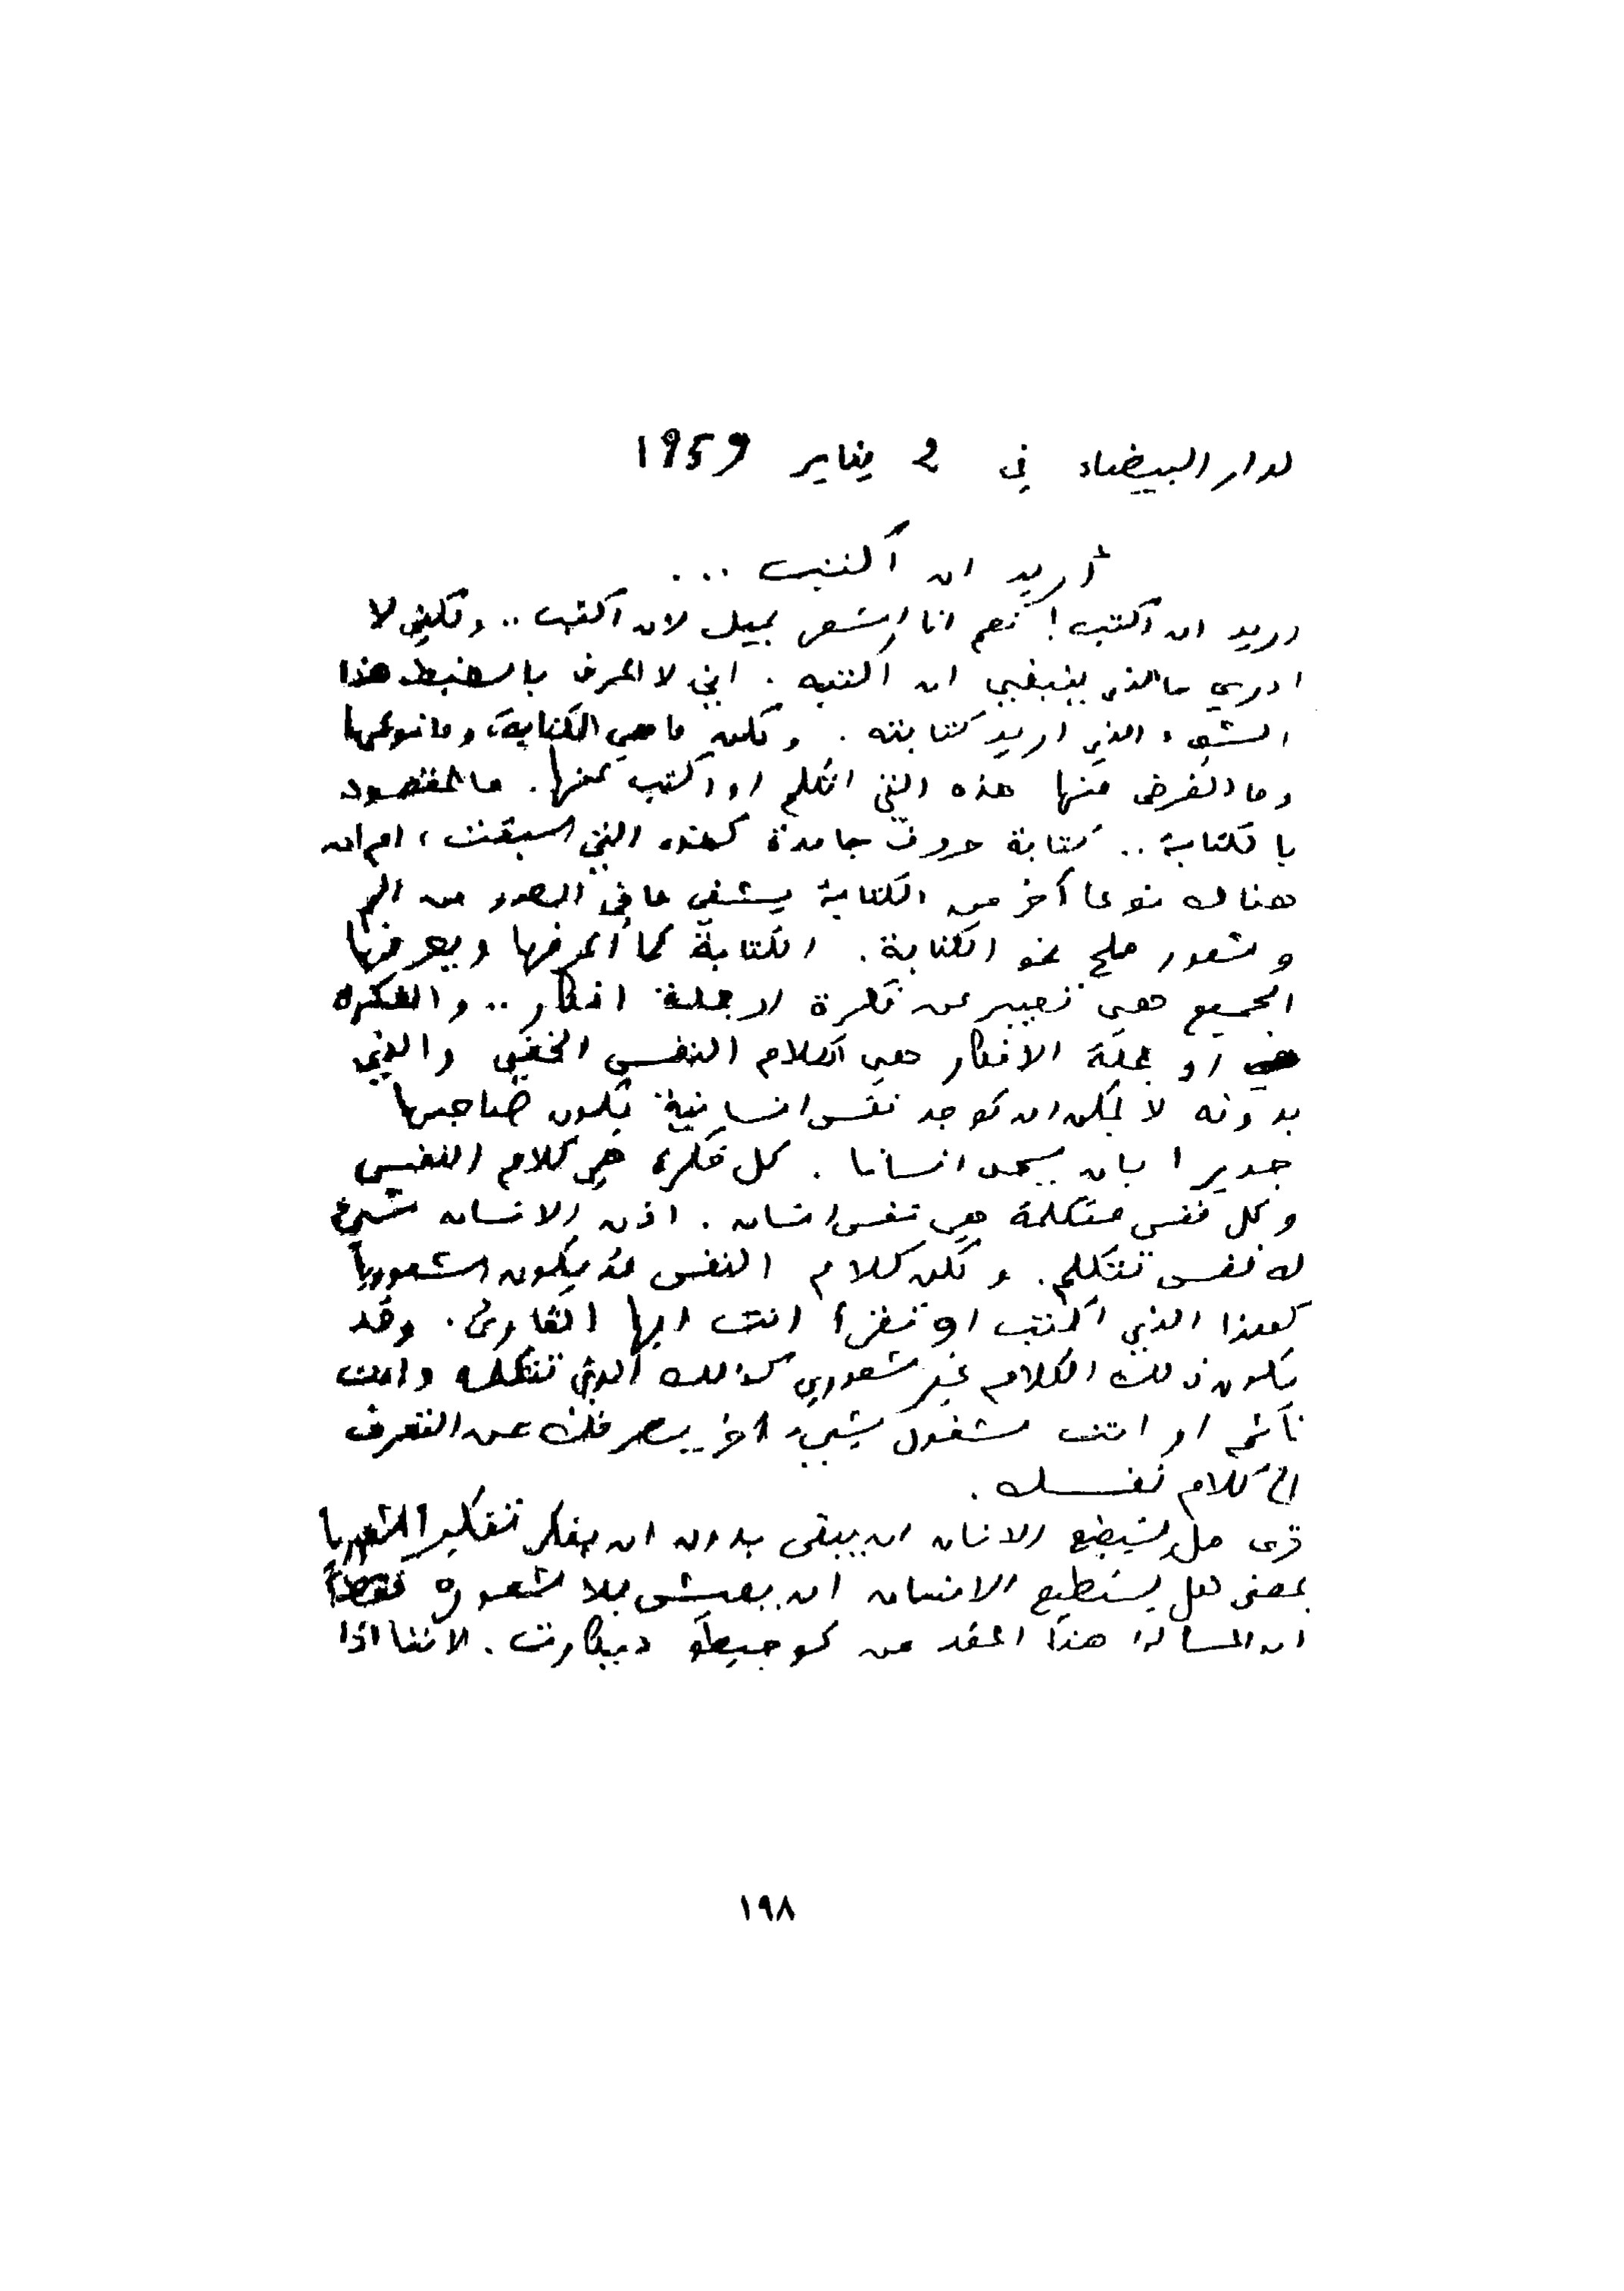 الدار البيضاء في 2 يناير 1959
أريد ان أكتب ...
اريد ان اكتب ! نعم انا اشعر بميل لان اكتب .. ولكني لا
ادري ما الذي ينبغي ان اكتبه . اني لا اعرف بالضبط هذا
الشيء الذي اريد كتابته . ولكن ما هي الكتابة، وما نوعها
وما الغرض منها هذه التي اتكلم او اكتب عنها . ما المقصود
بالكتابة .. كتابة حروف جامدة كهذه التي سبقت، ام ان
هناك نوعا آخر من الكتابة يشفي ما في الصدور من الم
وشعور ملح نحو الكتابة . الكتابة كما أعرفها ويعرفها
الجميع هي تعبير عن فكرة او جملة افكار .. والفكرة
او جملة الافكار هي الكلام النفسي الخفي والذي
بدونه لا يمكن ان توجد نفس انسانية يكون صاحبها
جديرا بان يسمى انسانا . كل فكرة هي كلام النفس
وكل نفس متكلمة هي نفس انسان . اذن الانسان شيء
له نفس تتكلم . ولكن كلام النفس قد يكون شعوريا
كهذا الذي اكتب او تقرأ انت ايها القارئ . وقد
يكون ذلك الكلام غير شعوري كذلك الذي تتكلمه وانت
نائم او انت مشغول بشيء آخر يصرفك عن التعرف
الى كلام نفسك .
ترى هل يستطيع الانسان ان يبقى بدون ان يفكر تفكيرا شعوريا
بمعنى هل يستطيع الانسان ان يعيش بلا شعوره فقط
ان المسألة هذا اعقد من كوجيطو ديكارت . لاننا اذا
١٩٨